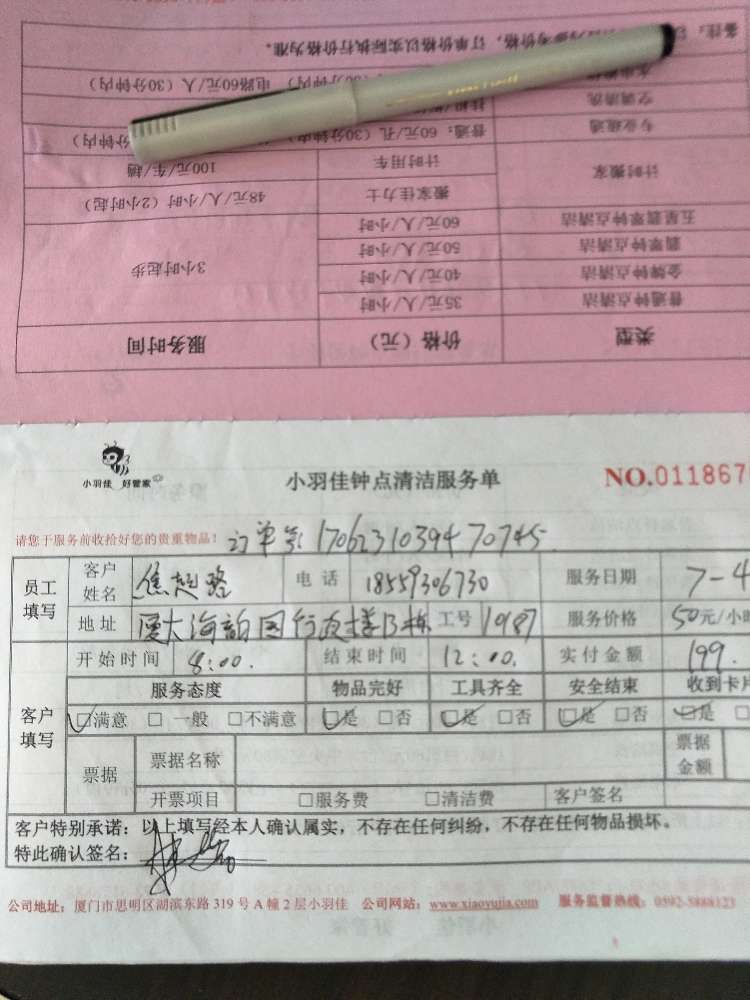 备注：
订单价格以实际执行价格为准。
电路60元/人（30分钟内）
空调清洗
专业疏通 普通：60元/孔（30分钟内）
计时搬家 计时用车 100元/车/趟
搬家佳力士 48元/人/小时（2小时起）
五星翡翠钟点清洁 60元/人/小时
翡翠钟点清洁 50元/人/小时 3小时起步
金牌钟点清洁 40元/人/小时
普通钟点清洁 35元/人/小时
类型 价格（元） 服务时间
小羽佳 好管家
小羽佳钟点清洁服务单
NO.011867
请您于服务前收拾好您的贵重物品！
订单号：1706231039470745
员工填写 客户姓名 焦 电话 18559306730 服务日期 7-4
地址 厦大海韵园行政楼B栋 工号 10187 服务价格 50元/小时
客户填写 开始时间 8:00. 结束时间 12:00. 实付金额 199.
服务态度 物品完好 工具齐全 安全结束 收到卡片
☑满意 □一般 □不满意 ☑是 □否 ☑是 □否 ☑是 □否 ☑是 □
票据 票据名称 票据金额
开票项目 □服务费 □清洁费 客户签名
客户特别承诺：以上填写经本人确认属实，不存在任何纠纷，不存在任何物品损坏。
特此确认签名：
公司地址：厦门市思明区湖滨东路 319 号 A 幢 2 层小羽佳 公司网站：www.xiaoyujia.com 服务监督热线：0592-5888123